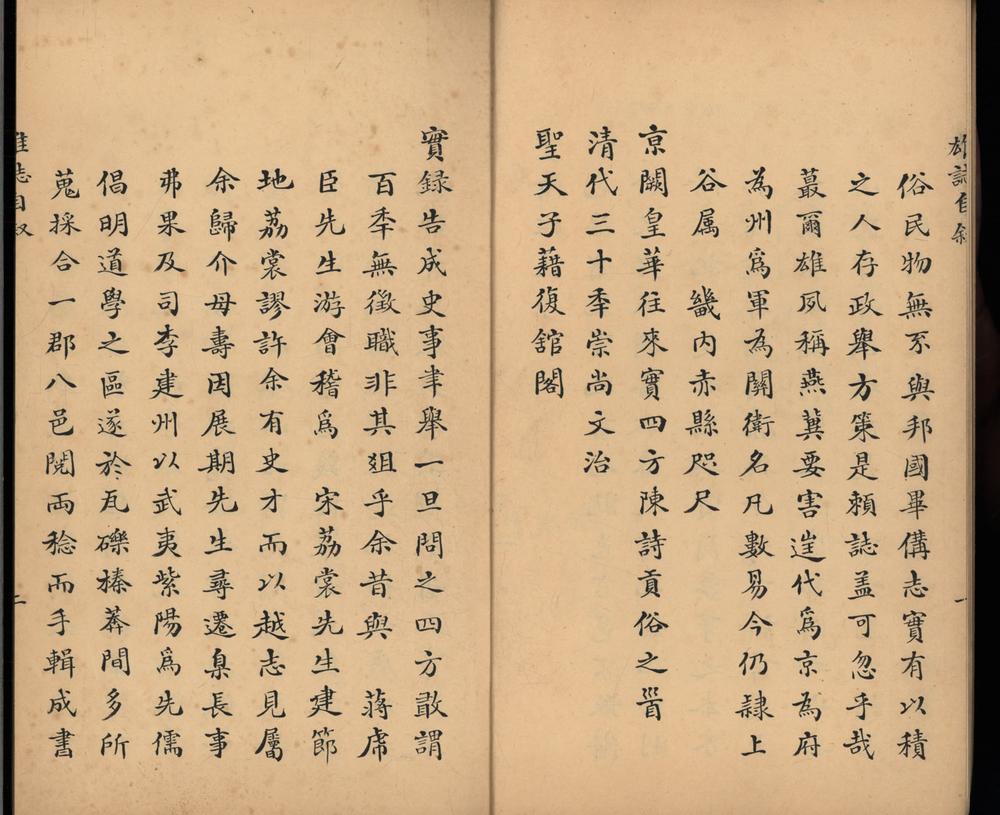 雄誌自叙
俗民物無不與邦國畢備志實有以積
之人存政舉方策是賴誌盖可忽乎哉
蕞爾雄夙稱燕冀要害遑代爲京為府
為州爲軍為關衛名凡數易今仍隸上
谷属 畿内赤縣咫尺
京闕皇華往來實四方陳詩貢俗之首
清代三十季崇尚文治
聖天子藉復舘閣
一
實録告成史事聿舉一旦問之四方敢謂
百季無徵職非其俎乎余昔與 蔣席
臣先生游會稽爲 宋荔裳先生建節
地荔裳謬許余有史才而以越志見屬
余歸介母壽因展期先生尋遷臬長事
弗果及司李建州以武夷紫陽爲先儒
倡明道學之區遂於瓦礫榛莽間多所
蒐採合一郡八邑閱兩稔而手輯成書
二